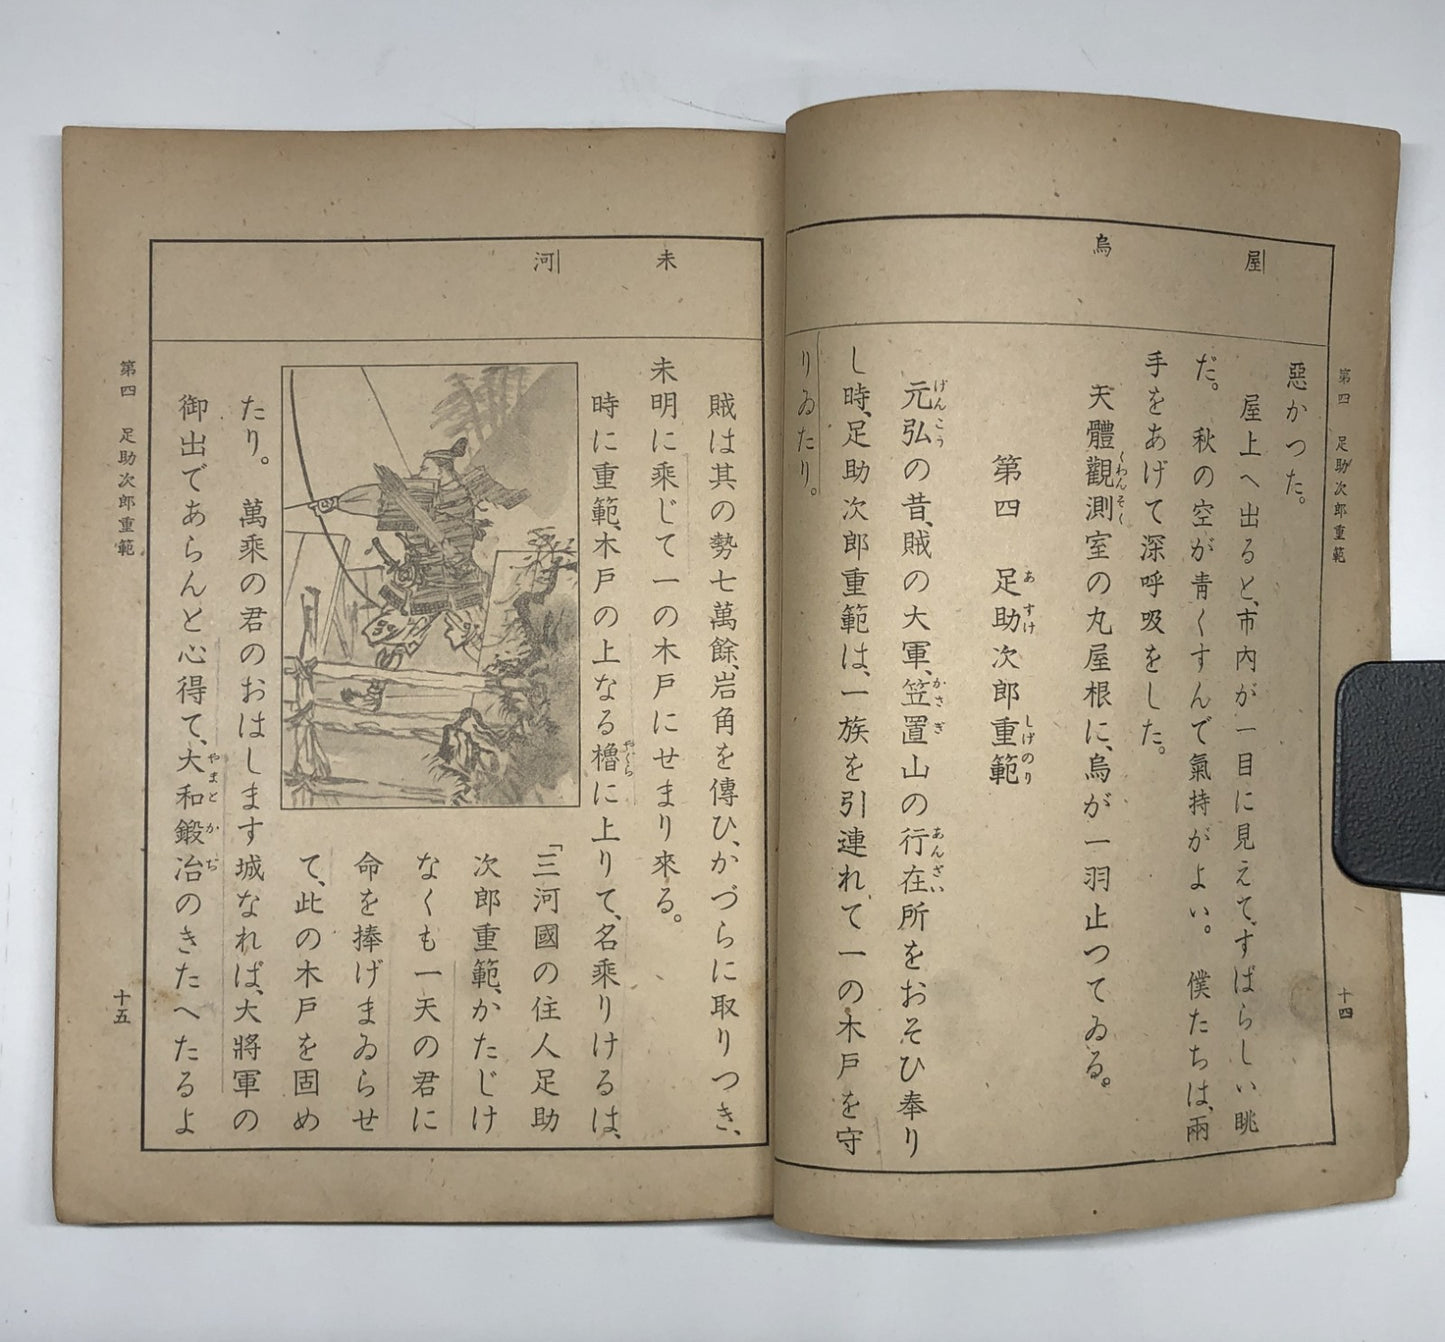 第四 足助次郎重範
十四
屋
烏
惡かつた。
屋上へ出ると、市内が一目に見えて、すばらしい眺
だ。秋の空が青くすんで氣持がよい。僕たちは、兩
手をあげて深呼吸をした。
天體觀測室の丸屋根に、烏が一羽止つてゐる。
くわんそく
第四 足助次郎重範
あすけ しげのり
元弘の昔、賊の大軍、笠置山の行在所をおそひ奉り
げんこう かさぎ あんざい
し時、足助次郎重範は、一族を引連れて一の木戸を守
りゐたり。
未
河
賊は其の勢七萬餘、岩角を傳ひ、かづらに取りつき、
未明に乘じて一の木戸にせまり來る。
時に重範、木戸の上なる櫓に上りて、名乘りけるは、
やぐら
「三河國の住人足助
次郎重範、かたじけ
なくも一天の君に
命を捧げまゐらせ
て、此の木戸を固め
たり。萬乘の君のおはします城なれば、大將軍の
御出であらんと心得て、大和鍛冶のきたへたるよ
やまとかぢ
第四 足助次郎重範
十五